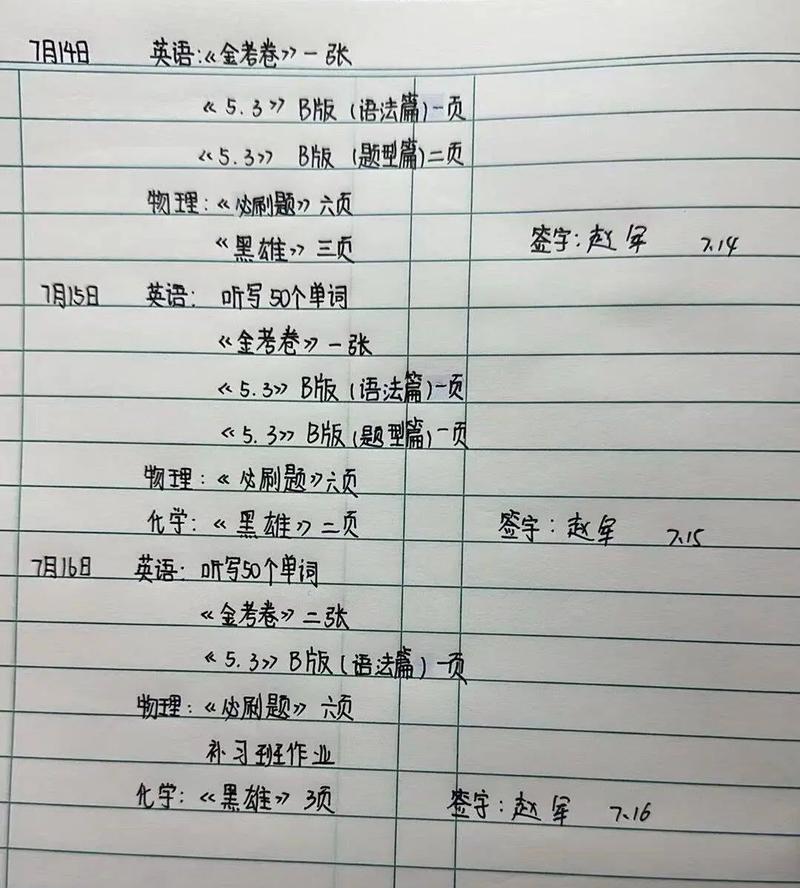 7月14日 英语:《金考卷》一张
《5.3》 B版 (语法篇)一页
《5.3》 B版 (题型篇)二页
物理:《必刷题》六页
《黑雄》三页 签字:赵军 7.14
7月15日 英语: 听写50个单词
《金考卷》一张
《5.3》 B版 (语法篇)一页
《5.3》 B版 (题型篇)一页
物理:《必刷题》六页
化学:《黑雄》二页 签字:赵军 7.15
7月16日 英语: 听写50个单词
《金考卷》二张
《5.3》 B版 (语法篇)一页
物理:《必刷题》六页
补习班作业
化学:《黑雄》3页 签字:赵军 7.16